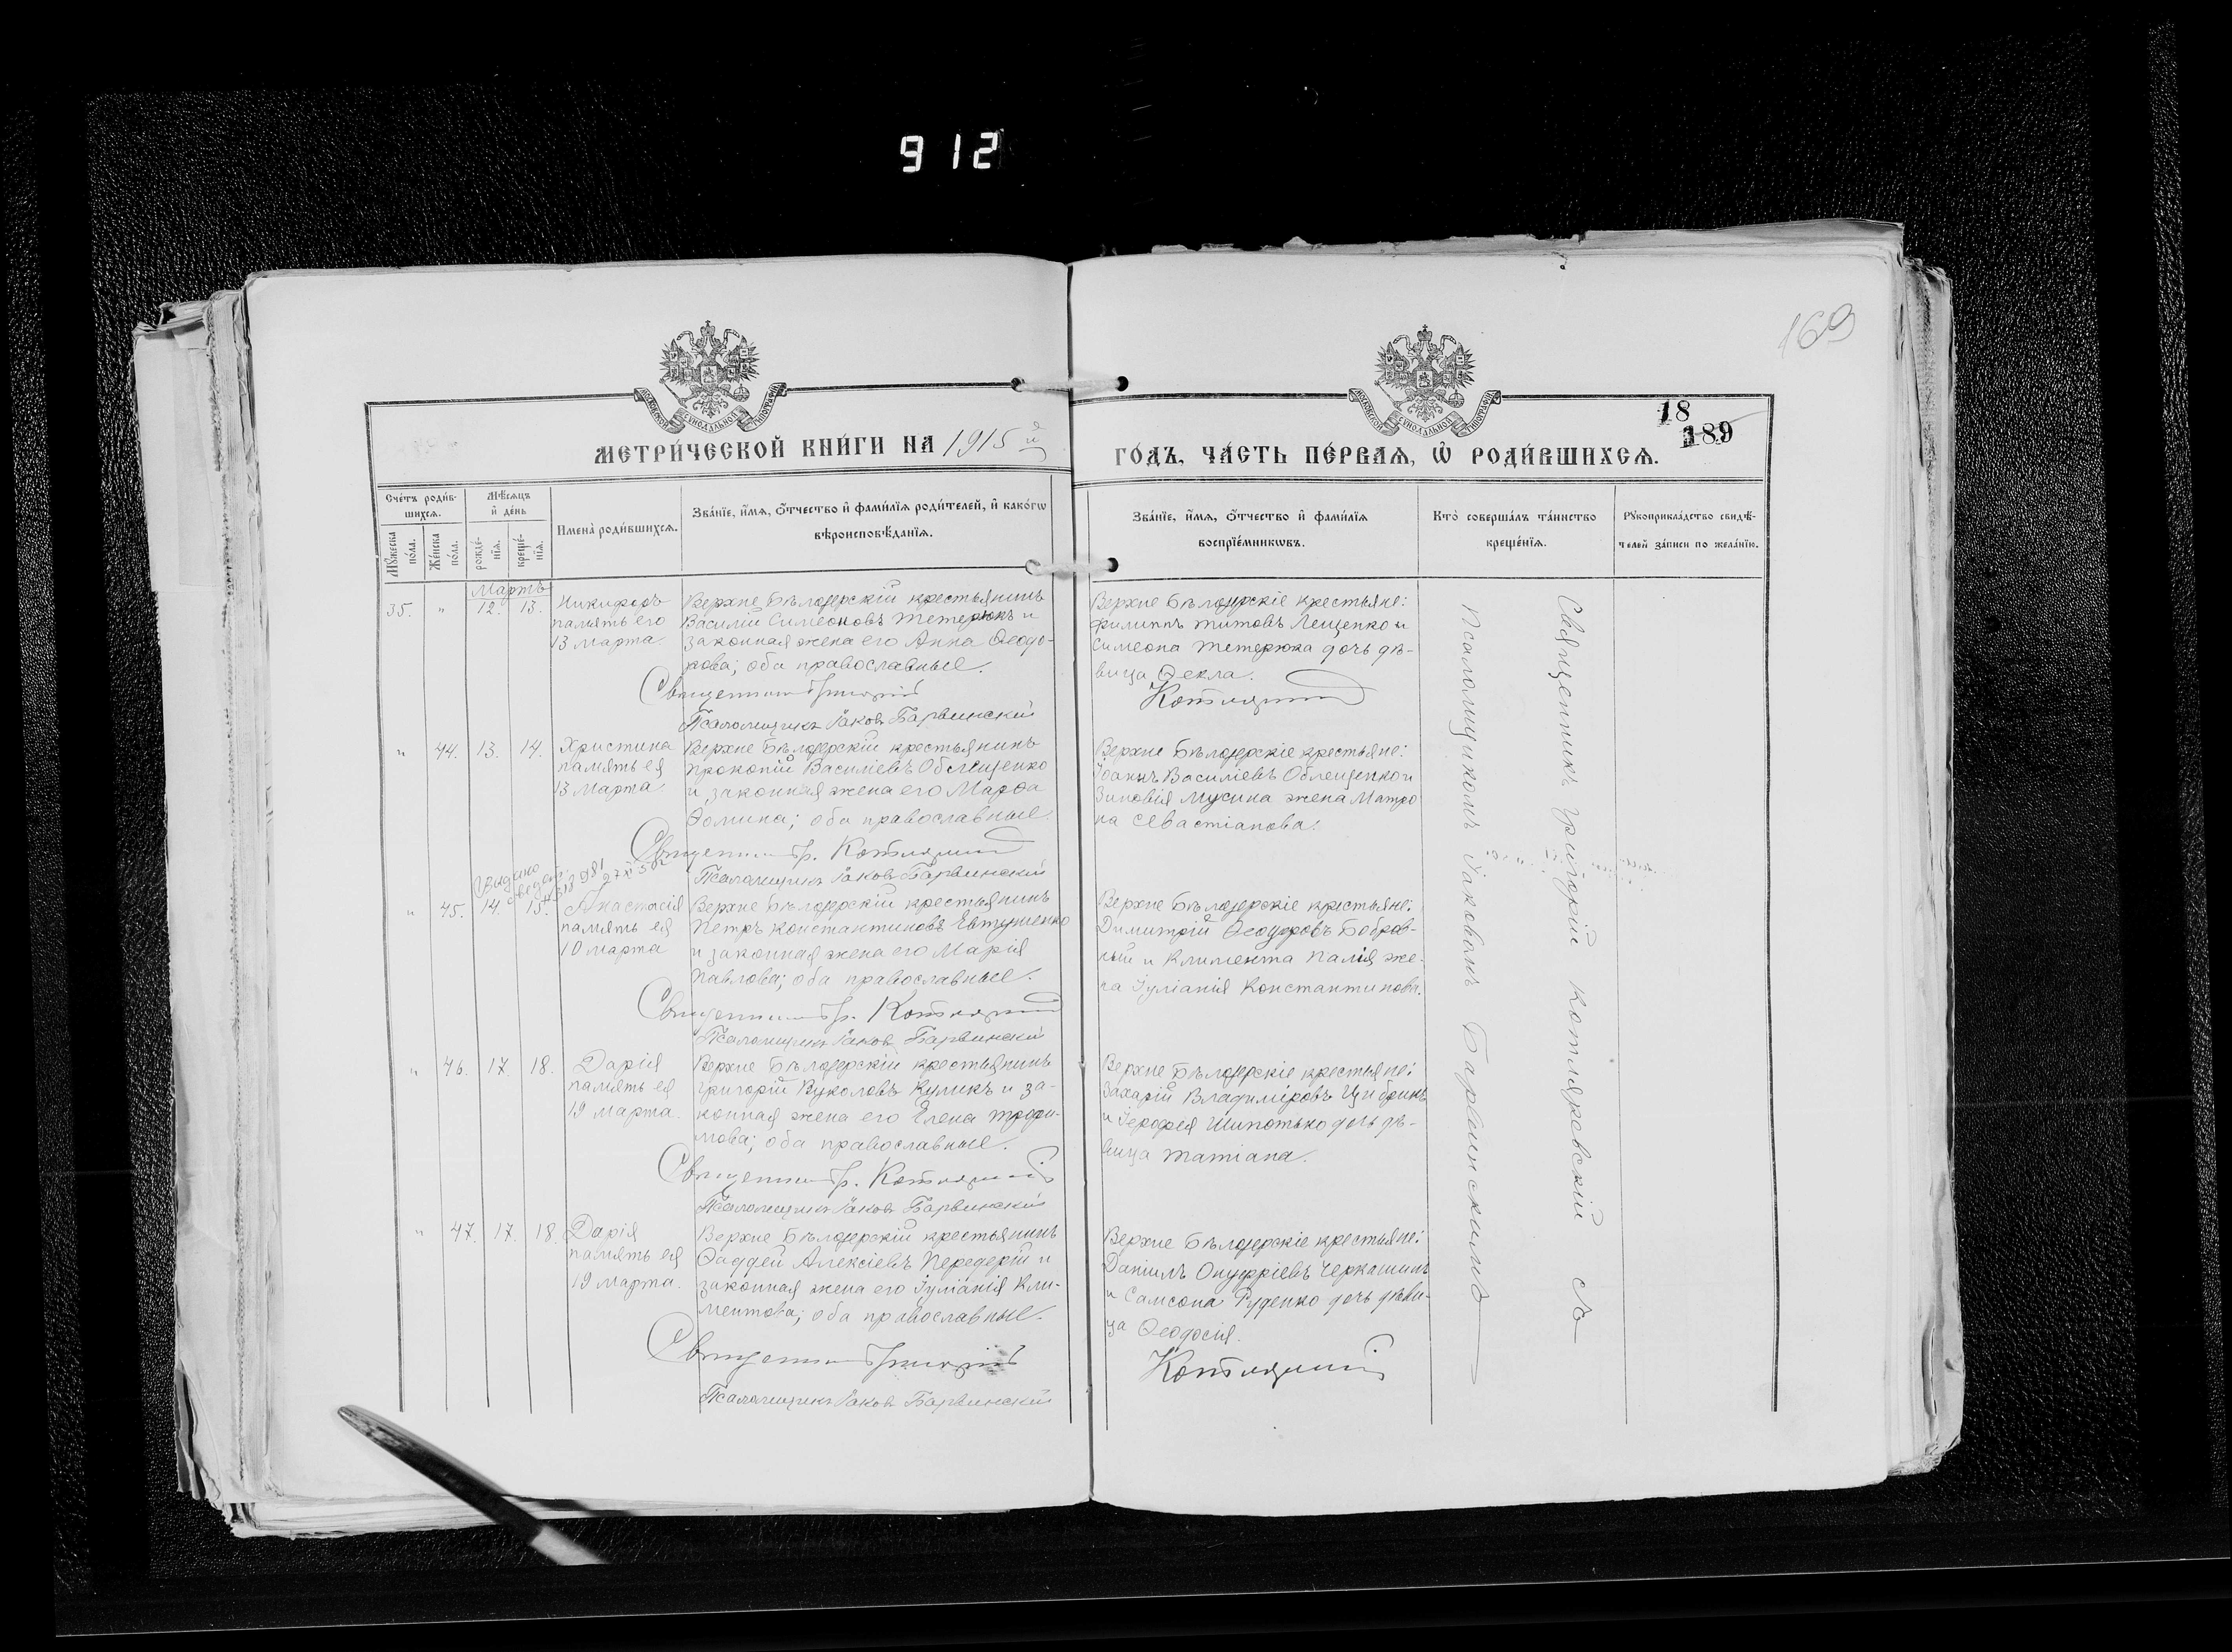 912
169
18
189
МОСКОВСКОЙ СѴНОДАЛЬНОЙ ТИПОГРАФІИ
МОСКОВСКОЙ СѴНОДАЛЬНОЙ ТИПОГРАФІИ
МЕТРИ́ЧЕСКОЙ КНИ́ГИ НА 1915 й
ГО́ДЪ, ЧА́СТЬ ПЕ́РВАѦ, Ѡ҆ РОДИ́ВШИХСѦ.
Сче́тъ роди́в-
шихсѧ.
Мѣ́сѧцъ
и҆ де́нь
Мꙋ́жеска
по́ла.
Же́нска
по́ла.
рожде́-
нїѧ.
креще́-
нїѧ.
Имена̀ роди́вшихсѧ.
Зва́нїе, и҆́мѧ, ѻ҆́тчество и҆ фами́лїѧ роди́телей, и҆ како́гѡ
вѣроисповѣ́данїѧ.
Зва́нїе, и҆́мѧ, ѻ҆́тчество и҆ фами́лїѧ
воспрїе́мникѡвъ.
Кто̀ соверша́лъ та́инство
креще́нїѧ.
Рꙋкоприкла́дство свидѣ́-
телей за́писи по жела́нїю.
Мартъ
35. " 12. 13.
Никифоръ
память его
13 марта.
Верхне Бѣлозерскій крестьянинъ
Василій Симеоновъ Тетерюкъ и
законная жена его Анна Ѳеодо-
рова; оба православные.
Священникъ Григорій
Псаломщикъ Іаковъ Барвинскій
Верхне Бѣлозерскіе крестьяне:
Филиппъ Титовъ Лещенко и
Симеона Тетерюка дочь дѣ-
вица Ѳекла.
Котляревскій
" 44. 13. 14.
Христина
память ея
13 Марта
Верхне Бѣлозерскій крестьянинъ
Прокопій Василіевъ Облещенко
и законная жена его Марѳа
Ѳомина; оба православные.
Священникъ Гр. Котляревскій
Псаломщикъ Іаковъ Барвинскій
Верхне Бѣлозерскіе крестьяне:
Іоаннъ Василіевъ Облещенко и
Зиновія Мусина жена Матро
на Севастіанова.
" 45. 14. 15.
Анастасія
память ея
10 марта
Верхне Бѣлозерскій крестьянинъ
Петръ Константиновъ Евтушенко
и законная жена его Марія
Павлова; оба православные.
Священникъ Гр. Котляревскій
Псаломщикъ Іаковъ Барвинскій
Верхне Бѣлозерскіе крестьяне:
Димитрій Ѳеодоровъ Бобров-
ный и Климента Палія же-
на Іуліанія Константинова.
" 46. 17. 18.
Дарія
память ея
19 марта.
Верхне Бѣлозерскій крестьянинъ
Григорій Вуколовъ Куликъ и за-
конная жена его Елена Трофи-
мова; оба православные.
Священникъ Гр. Котляревскій
Псаломщикъ Іаковъ Барвинскій
Верхне Бѣлозерскіе крестьяне:
Захарій Владиміровъ Цибрикъ
и Іерофея Шипотько дочь дѣ-
вица Татіана.
" 47. 17. 18.
Дарія
память ея
19 марта.
Верхне Бѣлозерскій крестьянинъ
Ѳаддей Алексіевъ Передерій и
законная жена его Іуліанія Кли-
ментова; оба православные.
Священникъ Григорій
Псаломщикъ Іаковъ Барвинскій
Верхне Бѣлозерскіе крестьяне:
Даніилъ Онуфріевъ Черкашинъ
и Самсона Руденко дочь дѣви-
ца Ѳеодосія.
Котляревскій
Священникъ Григорій Котляревскій съ
Псаломщикомъ Іаковомъ Барвинскимъ